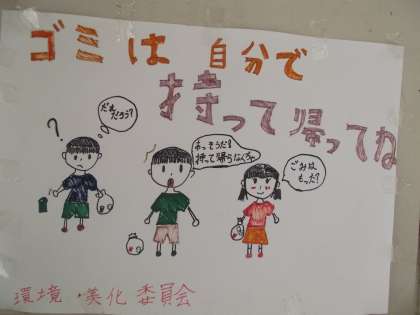 ゴミは 自分で
持って帰ってね
?
だれだろう?
あっそうだ!
持って帰らなくちゃ
ごみは
もった?
環境・美化委員会